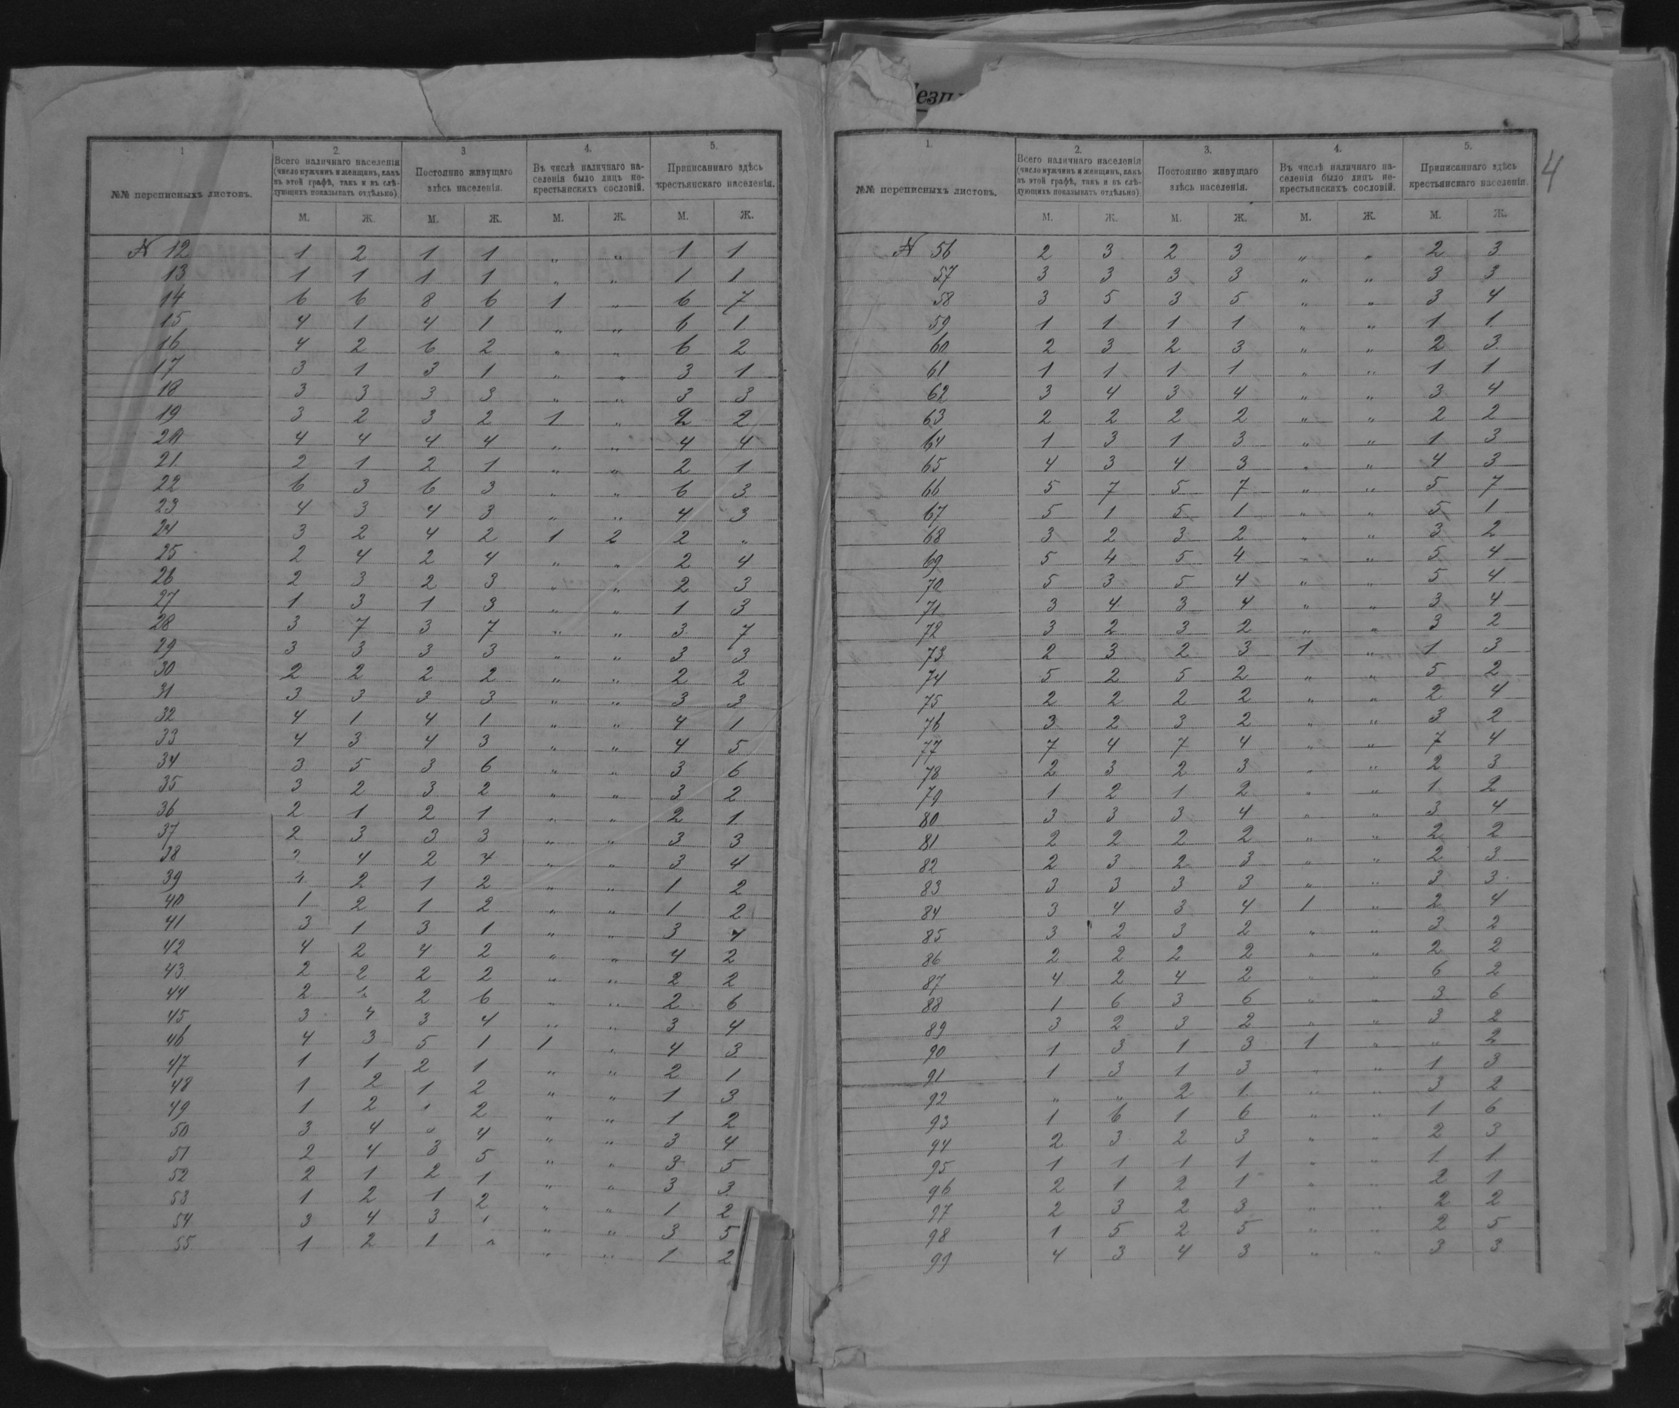 езп
4
1
2.
3
4.
5.
№№ переписныхъ листовъ.
Всего наличнаго населенія
(число мужчинъ и женщинъ, какъ
въ этой графѣ, такъ и въ слѣ-
дующихъ показывать отдѣльно)
Постоянно живущаго
здѣсь населенія.
Въ числѣ наличнаго на-
селенія было лицъ не-
крестьянскихъ сословій.
Приписаннаго здѣсь
крестьянскаго населенія.
М. Ж. М. Ж. М. Ж. М. Ж.
№ 12 1 2 1 1 „ „ 1 1
13 1 1 1 1 „ „ 1 1
14 6 6 8 6 1 „ 6 7
15 4 1 4 1 „ „ 6 1
16 4 2 6 2 „ „ 6 2
17 3 1 3 1 „ „ 3 1
18 3 3 3 3 „ „ 3 3
19 3 2 3 2 1 „ 2 2
20 4 4 4 4 „ „ 4 4
21 2 1 2 1 „ „ 2 1
22 6 3 6 3 „ „ 6 3
23 4 3 4 3 „ „ 4 3
24 3 2 4 2 1 2 2 „
25 2 4 2 4 „ „ 2 4
26 2 3 2 3 „ „ 2 3
27 1 3 1 3 „ „ 1 3
28 3 7 3 7 „ „ 3 7
29 3 3 3 3 „ „ 3 3
30 2 2 2 2 „ „ 2 2
31 3 3 3 3 „ „ 3 3
32 4 1 4 1 „ „ 4 1
33 4 3 4 3 „ „ 4 5
34 3 5 3 6 „ „ 3 6
35 3 2 3 2 „ „ 3 2
36 2 1 2 1 „ „ 2 1
37 2 3 3 3 „ „ 3 3
38 4 2 4 „ „ 3 4
39 2 1 2 „ „ 1 2
40 1 2 1 2 „ „ 1 2
41 3 1 3 1 „ „ 3 4
42 4 2 4 2 „ „ 4 2
43 2 2 2 2 „ „ 2 2
44 2 2 6 „ „ 2 6
45 3 4 3 4 „ „ 3 4
46 4 3 5 1 1 „ 4 3
47 1 1 2 1 „ „ 2 1
48 1 2 1 2 „ „ 1 3
49 1 2 2 „ „ 1 2
50 3 4 4 „ „ 3 4
51 2 4 3 5 „ „ 3 5
52 2 1 2 1 „ „ 3 3
53 1 2 1 2 „ „ 1 2
54 3 4 3 „ „ 3 5
55 1 2 1 „ „ 1 2
1.
2.
3.
4.
5.
№№ переписныхъ листовъ.
Всего наличнаго населенія
(число мужчинъ и женщинъ, какъ
въ этой графѣ, такъ и въ слѣ-
дующихъ показывать отдѣльно)
Постоянно живущаго
здѣсь населенія.
Въ числѣ наличнаго на-
селенія было лицъ не-
крестьянскихъ сословій.
Приписаннаго здѣсь
крестьянскаго населенія.
М. Ж. М. Ж. М. Ж. М. Ж.
№ 56 2 3 2 3 „ „ 2 3
57 3 3 3 3 „ „ 3 3
58 3 5 3 5 „ „ 3 4
59 1 1 1 1 „ „ 1 1
60 2 3 2 3 „ „ 2 3
61 1 1 1 1 „ „ 1 1
62 3 4 3 4 „ „ 3 4
63 2 2 2 2 „ „ 2 2
64 1 3 1 3 „ „ 1 3
65 4 3 4 3 „ „ 4 3
66 5 7 5 7 „ „ 5 7
67 5 1 5 1 „ „ 5 1
68 3 2 3 2 „ „ 3 2
69 5 4 5 4 „ „ 5 4
70 5 3 5 4 „ „ 5 4
71 3 4 3 4 „ „ 3 4
72 3 2 3 2 „ „ 3 2
73 2 3 2 3 1 „ 1 3
74 5 2 5 2 „ „ 5 2
75 2 2 2 2 „ „ 2 4
76 3 2 3 2 „ „ 3 2
77 7 4 7 4 „ „ 7 4
78 2 3 2 3 „ „ 2 3
79 1 2 1 2 „ „ 1 2
80 3 3 3 4 „ „ 3 4
81 2 2 2 2 „ „ 2 2
82 2 3 2 3 „ „ 2 3
83 3 3 3 3 „ „ 3 3
84 3 4 3 4 1 „ 2 4
85 3 2 3 2 „ „ 3 2
86 2 2 2 2 „ „ 2 2
87 4 2 4 2 „ „ 6 2
88 1 6 3 6 „ „ 3 6
89 3 2 3 2 „ „ 3 2
90 1 3 1 3 1 „ „ 2
91 1 3 1 3 „ „ 1 3
92 „ „ 2 1 „ „ 3 2
93 1 6 1 6 „ „ 1 6
94 2 3 2 3 „ „ 2 3
95 1 1 1 1 „ „ 1 1
96 2 1 2 1 „ „ 2 1
97 2 3 2 3 „ „ 2 2
98 1 5 2 5 „ „ 2 5
99 4 3 4 3 „ „ 3 3